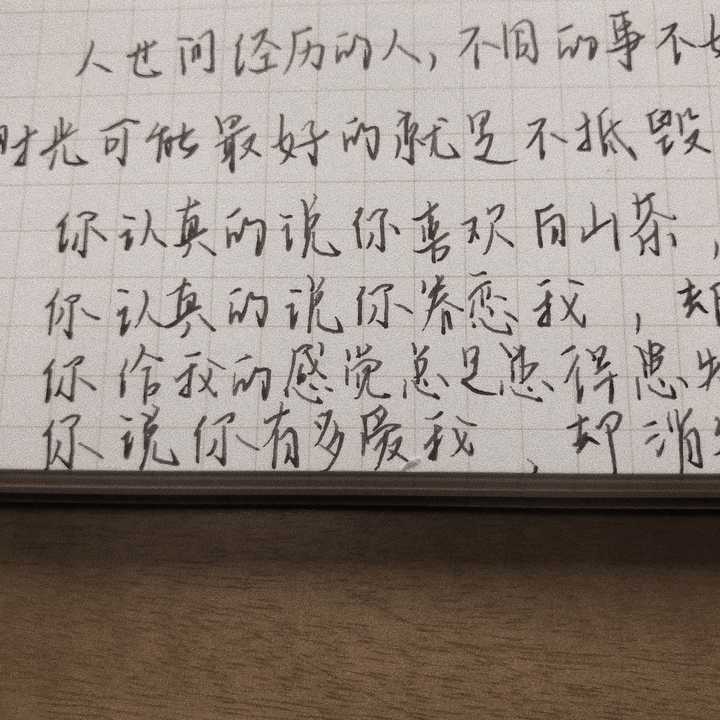 人世间经历的人，不同的事不
时光可能最好的就是不抵毁
你认真的说你喜欢白山茶，
你认真的说你眷恋我，却
你给我的感觉总是患得患失
你说你有多爱我，却消失